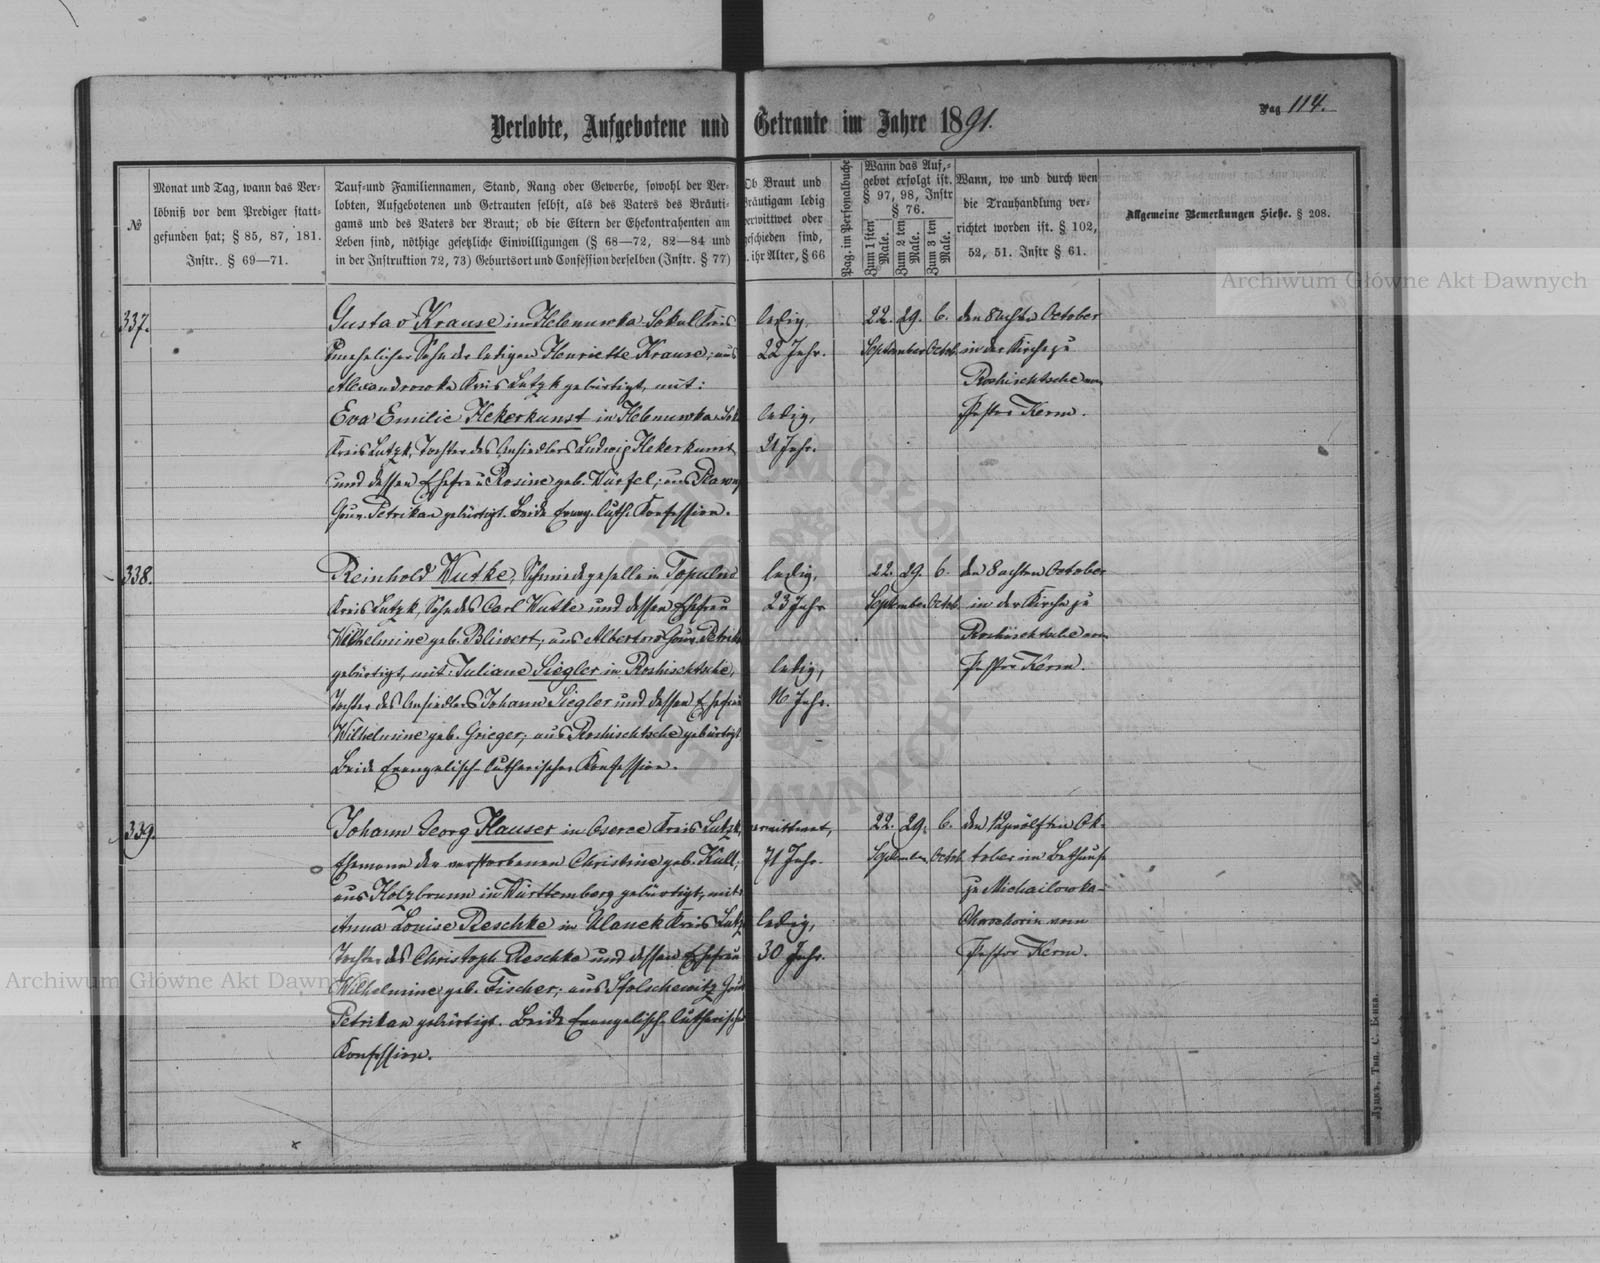 Pag 114.
Verlobte, Aufgebotene und Getraute im Jahre 1891.
№
Monat und Tag, wann das Ver-
löbniß vor dem Prediger statt-
gefunden hat; § 85, 87, 181.
Instr. § 69—71.
Tauf- und Familiennamen, Stand, Rang oder Gewerbe, sowohl der Ver-
lobten, Aufgebotenen und Getrauten selbst, als des Vaters des Bräuti-
gams und des Vaters der Braut; ob die Eltern der Ehekontrahenten am
Leben sind, nöthige gesetzliche Einwilligungen (§ 68—72, 82—84 und
in der Instruktion 72, 73) Geburtsort und Confession derselben (Instr. § 77)
Ob Braut und
Bräutigam ledig
verwittwet oder
geschieden sind,
ihr Alter, § 66
Pag. im Personalbuche
Wann das Auf-
gebot erfolgt ist.
§ 97, 98, Instr
§ 76.
Zum 1 sten Male.
Zum 2 ten Male.
Zum 3 ten Male.
Wann, wo und durch wen
die Trauhandlung ver-
richtet worden ist. § 102,
52, 51. Instr § 61.
Allgemeine Bemerkungen Siehe. § 208.
337.
Gustav Krause in Helenuwka Sokul Kreis
Unehelicher Sohn der ledigen Henriette Krause; aus
Alexandrowka Kreis Lutzk gebürtigt, mit:
Eva Emilie Hekerkunst in Helenuwka
Kreis Lutzk, Tochter des Ansiedlers Ludwig Hekerkunst
und dessen Ehefrau Rosine geb. Würfel; aus
Gouv. Petrikau gebürtigt. Beide Evang. luth. Konfession.
ledig,
22 Jahr.
ledig,
21 Jahr.
22. 29. 6.
September Octob.
den 8 achten October
in der Kirche zu
Roshischtsche vom
Pastor Kerm.
338.
Reinhold Wutke, Schmiedegeselle in Topulno
Kreis Lutzk, Sohn des Carl Wutke und dessen Ehefrau
Wilhelmine geb. Bliwert; aus Albertow Gouv. Petrik
gebürtigt, mit: Juliane Siegler in Roshischtsche,
Tochter des Ansiedlers Johann Siegler und dessen Ehefrau
Wilhelmine geb. Grieger; aus Roshischtsche gebürtigt
Beide Evangelisch-lutherischer Konfession.
ledig,
23 Jahr
ledig,
16 Jahr.
22. 29. 6.
September Octob.
den 8 achten October
in der Kirche zu
Roshischtsche vom
Pastor Kerm.
339.
Johann Georg Hauser in Oserce Kreis Lutzk,
Ehemann der verstorbenen Christine geb. Kull;
aus Holzbrunn in Württemberg gebürtigt, mit:
Anna Louise Reschke in Ulanek Kreis Lutzk
Tochter des Christoph Reschke und dessen Ehefrau
Wilhelmine geb. Fischer; aus Gouv
Petrikau gebürtigt. Beide Evangelisch-lutherischer
Konfession.
verwittwet,
71 Jahr.
ledig,
30 Jahr.
22. 29. 6.
September Octob.
den 12 zwölften Ok-
tober im Bethause
zu Michailowka-
vom
Pastor Kerm.
Луцкъ, Тип. С. Бонка.
Archiwum Główne Akt Dawnych
Archiwum Główne Akt Dawnych